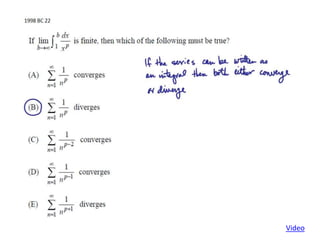 1998 BC 22
If lim b→∞ ∫₁ᵇ dx/xᵖ is finite, then which of the following must be true?
(A) ∑ₙ₌₁^∞ 1/nᵖ converges
(B) ∑ₙ₌₁^∞ 1/nᵖ diverges
(C) ∑ₙ₌₁^∞ 1/nᵖ⁻² converges
(D) ∑ₙ₌₁^∞ 1/nᵖ⁻¹ converges
(E) ∑ₙ₌₁^∞ 1/nᵖ⁺¹ diverges
If the series can be written as
an integral then both either converge
or diverge
Video